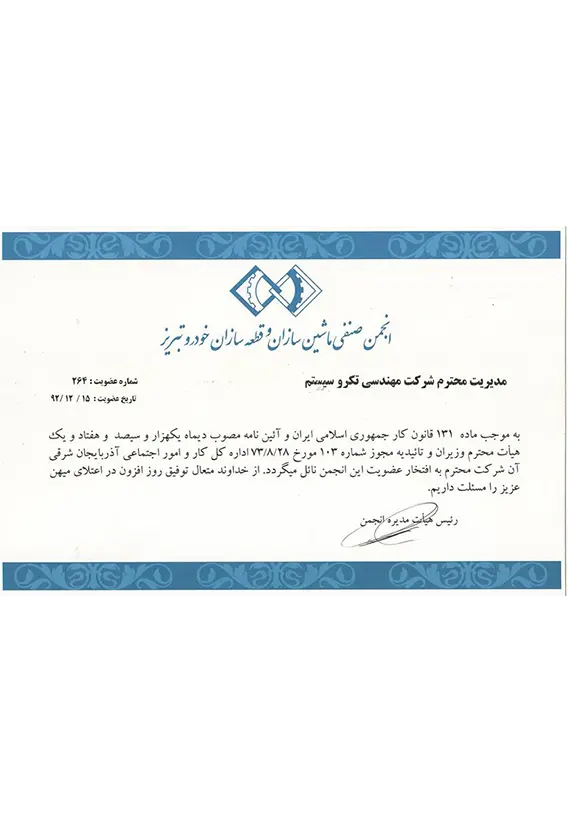 انجمن صنفی ماشین سازان و قطعه سازان خودرو تبریز
مدیریت محترم شرکت مهندسی تکرو سیستم
شماره عضویت : ۲۶۴
تاریخ عضویت : ۱۵ / ۱۲ / ۹۲
به موجب ماده ۱۳۱ قانون کار جمهوری اسلامی ایران و آئین نامه مصوب دیماه یکهزار و سیصد و هفتاد و یک
هیأت محترم وزیران و تائیدیه مجوز شماره ۱۰۳ مورخ ۷۳/۸/۲۸ اداره کل کار و امور اجتماعی آذربایجان شرقی
آن شرکت محترم به افتخار عضویت این انجمن نائل میگردد. از خداوند متعال توفیق روز افزون در اعتلای میهن
عزیز را مسئلت داریم.
رئیس هیأت مدیره انجمن